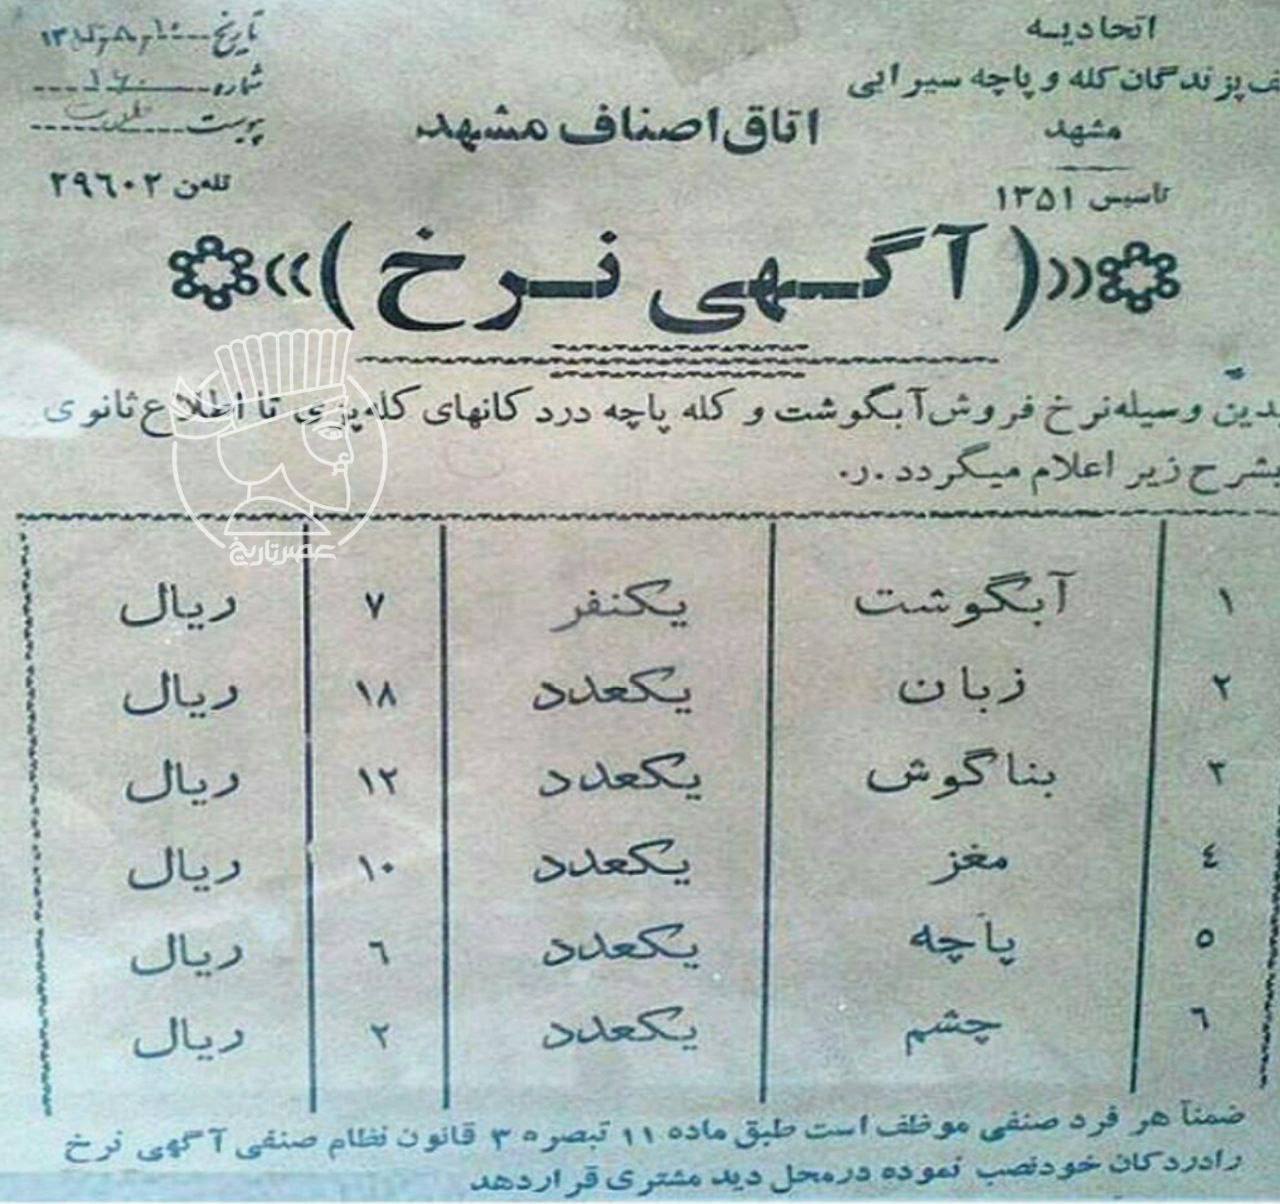 اتحادیه
پزندگان کله و پاچه سیرابی
مشهد
تاسیس ۱۳۵۱
اتاق اصناف مشهد
تاریخ
شماره
پیوست
تلفن ۲۹۶۰۲
«(آگهی نرخ)»
وسیله نرخ فروش آبگوشت و کله پاچه در دکانهای کله‌پزی تا اطلاع ثانوی
بشرح زیر اعلام میگردد.ر.
۱ آبگوشت یکنفر ۷ ریال
۲ زبان یکعدد ۱۸ ریال
۳ بناگوش یکعدد ۱۲ ریال
۴ مغز یکعدد ۱۰ ریال
۵ پاچه یکعدد ۶ ریال
۶ چشم یکعدد ۲ ریال
ضمناً هر فرد صنفی موظف است طبق ماده ۱۱ تبصره ۳ قانون نظام صنفی آگهی نرخ
را در دکان خود نصب نموده در محل دید مشتری قرار دهد
عصر تاریخ